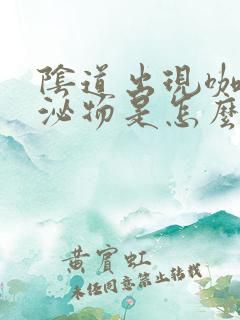 陰道出現咖
泌物是怎麼
黄賓虹
未经同意禁止转载